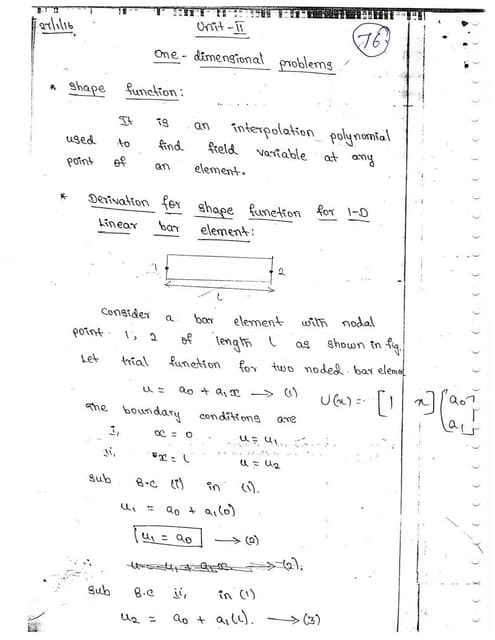 27/1/16
Unit-II
76
One-dimensional problems
* Shape function:
It is an interpolation polynomial
used to find field variable at any
point of an element.
* Derivation for shape function for 1-D
Linear bar element:
1 2
L
Consider a bar element with nodal
point 1, 2 of length L as shown in fig.
Let trial function for two noded bar eleme
u = a₀ + a₁x → (1) U(x) = [1 x] {a₀ a₁}
The boundary conditions are
i, x = 0 u = u₁
ii, x = L u = u₂
Sub B.C (i) in (1).
u₁ = a₀ + a₁(0)
u₁ = a₀ → (2)
∴ → (2).
Sub B.C ii, in (1)
u₂ = a₀ + a₁(L). → (3)